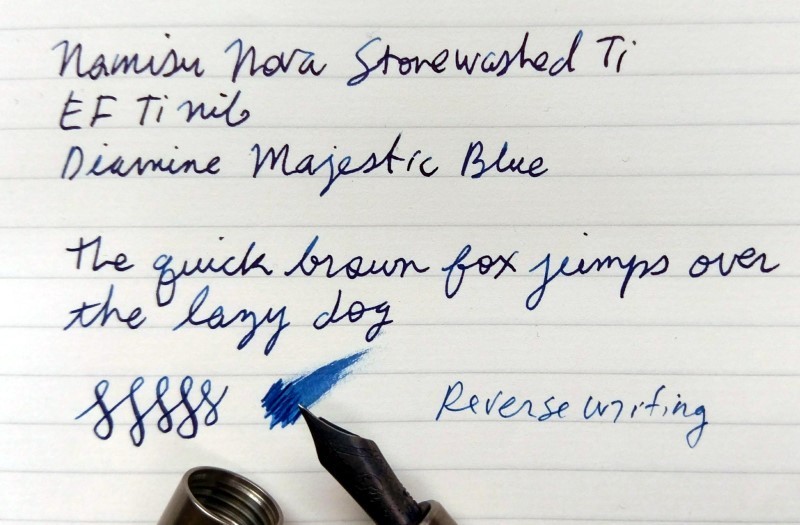 Namisu Nova Stonewashed Ti
EF Ti nib
Diamine Majestic Blue
the quick brown fox jumps over
the lazy dog
Reverse writing